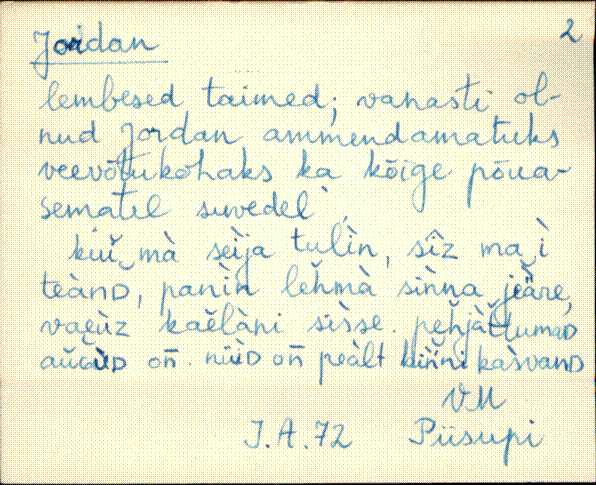 Jordan 2
lembesed taimed; vanasti ol-
nud Jordan ammendamatuks
veevõtukohaks ka kõige põua-
sematel suvedel.
kuǐ mà sèija tulìn, sîz ma ì
teànᴅ, panìn lehmà sìnna jäāre,
vaeùz kaelàni sìsse. pehjàttumaᴅ
aùgùᴅ on̄. nüìᴅ on̄ peàlt kin̄ni kàsvanᴅ
VM
J.A.72 Piisupi